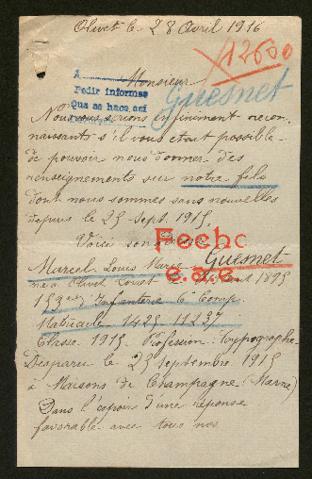 Olivet le 28 Avril 1916
12600
A
Monsieur
Pedir informes
Que se hace así
Guesnet
Nous vous serions infiniment recon-
naissants s'il vous etait possible
de pouvoir nous donner des
renseignements sur notre fils
dont nous sommes sans nouvelles
depuis le 25 sept. 1915
Voici son
Fecho
Marcel Louis Marie Guesnet
né à Olivet Loiret le 1895
153e Infanterie 6e Comp.
Matricule 1425 11237
Classe 1915. Profession. Typographe
Disparu le 25 septembre 1915
à Maisons de Champagne (Marne)
Dans l'espoir d'une réponse
favorable avec tous nos